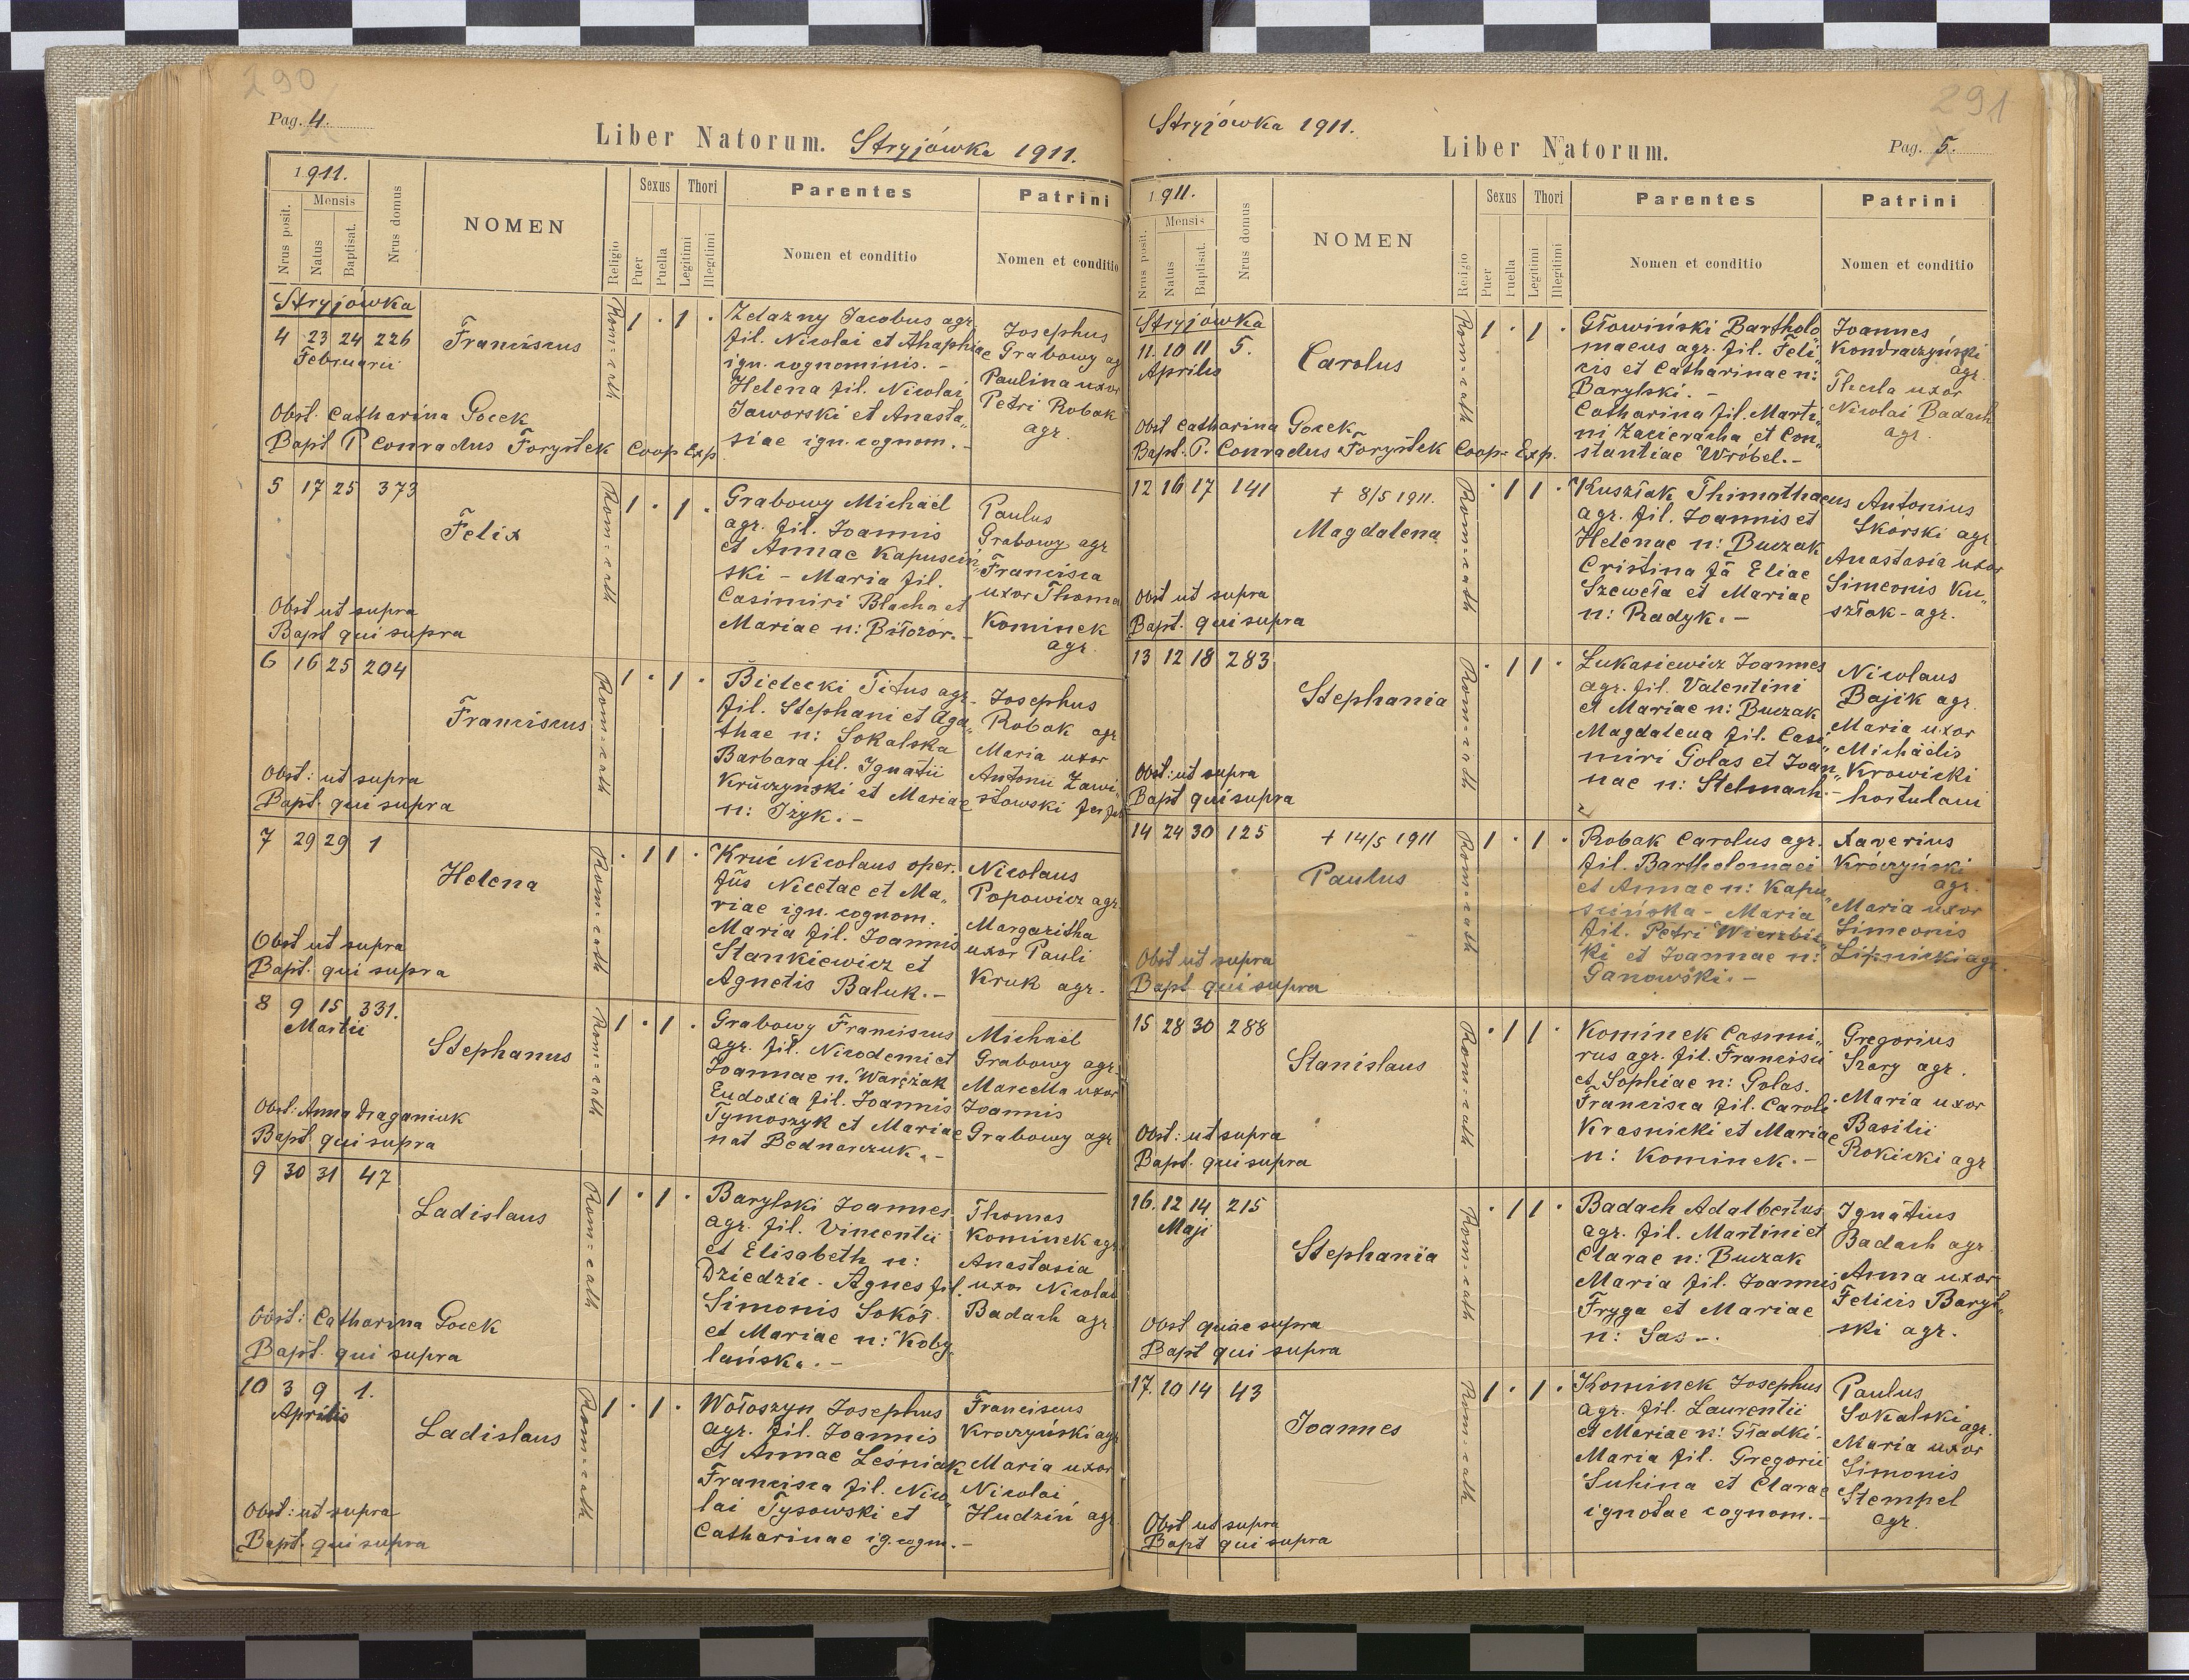 290
Pag. 4.
Liber Natorum. Stryjówka 1911.
1911.
Nrus posit.
Mensis
Natus
Baptisat.
Nrus domus
NOMEN
Religio
Sexus
Puer
Puella
Thori
Legitimi
Illegitimi
Parentes
Nomen et conditio
Patrini
Nomen et conditio
Stryjówka
4 23 24 226
Februarii
Franciscus
Rom=cath
1 . 1 .
Żelazny Jacobus agr.
fil. Nicolai et Ahaphiae
ign. cognominis. -
Helena fil. Nicolai
Jaworski et Anasta„
siae ign. cognom. -
Josephus
Grabowy ag
Paulina uxor
Petri Robak
agr.
Obst. Catharina Gocek
Bapt P Conradus Forystek Coop Exp.
5 17 25 373
Felix
Rom=cath
1 . 1 .
Grabowy Michaël
agr. fil. Joannis
et Annae Kapuściń„
ski - Maria fil.
Casimiri Blacha et
Mariae n: Biłozór. -
Paulus
Grabowy agr
Francisca
uxor Thoma
Kominek
agr.
Obst ut supra
Bapt qui supra
6 16 25 204
Franciscus
Rom=cath
1 . 1 .
Bielecki Titus agr.
fil. Stephani et Aga„
thae n: Sokalska
Barbara fil. Ignatii
Kruczyński et Mariae
n: Iżyk. -
Josephus
Robak agr
Maria uxor
Antonii Zawi„
słowski
Obst: ut supra
Bapt. qui supra
7 29 29 1
Helena
Rom=cath
. 1 1 .
Kruć Nicolaus oper.
fiis Nicetae et Ma„
riae ign. cognom.
Maria fil. Joannis
Stankiewicz et
Agnetis Baluk. -
Nicolaus
Popowicz agr
Margaritha
uxor Pauli
Kruk agr.
Obst ut supra
Bapt. qui supra
8 9 15 331.
Martii
Stephanus
Rom=cath
1 . 1 .
Grabowy Franciscus
agr. fil. Nicodemi et
Joannae n. Warżak
Eudoxia fil. Joannis
Tymoszyk et Mariae
nat Bednarczuk. -
Michaël
Grabowy agr.
Marcella uxor
Joannis
Grabowy agr
Obst: Anna Draganiuk
Bapt. qui supra
9 30 31 47
Ladislaus
Rom=cath
1 . 1 .
Barylski Joannes
agr. fil. Vincentii
et Elisabeth n:
Dziedzic. Agnes fil.
Simonis Sokół
et Mariae n: Koby„
lańska. -
Thomas
Kominek agr
Anastasia
uxor Nicolai
Badach agr
Obst: Catharina Gocek
Bapt. qui supra
10 3 9 1.
Aprilis
Ladislaus
Rom=cath
1 . 1 .
Wołoszyn Josephus
agr. fil. Joannis
et Annae Leśniak
Francisca fil. Nico„
lai Tysowski et
Catharinae ig. cogm. -
Franciscus
Kroczyński agr
Maria uxor
Nicolai
Hudziń agr.
Obst: ut supra
Bapt. qui supra
291
Stryjówka 1911.
Liber Natorum.
Pag. 5.
1911.
Nrus posit.
Mensis
Natus
Baptisat.
Nrus domus
NOMEN
Religio
Sexus
Puer
Puella
Thori
Legitimi
Illegitimi
Parentes
Nomen et conditio
Patrini
Nomen et conditio
Stryjówka
11. 10 11 5.
Aprilis
Carolus
Rom=cath
1 . 1 .
Głowiński Bartholo„
maeus agr. fil. Feli„
cis et Catharinae n:
Barylski. -
Catharina fil. Marti„
ni Zacieracha et Con„
stantiae Wróbel. -
Joannes
Kondraczyński
agr.
Thecla uxor
Nicolai Badach
agr.
Obst Catharina Gocek
Bapt. P. Conradus Forystek Coop= Exp.
12 16 17 141
+ 8/5 1911.
Magdalena
Rom=cath
. 1 1 .
Kusztak Thimothaeus
agr. fil. Joannis et
Helenae n: Buczak
Cristina fa Eliae
Szeweta et Mariae
n: Radyk. -
Antonius
Skórski agr
Anastasia uxor
Simeonis Ku„
sztak - agr.
Obst ut supra
Bapt. qui supra
13 12 18 283
Stephania
Rom=cath
. 1 1 .
Łukasiewicz Joannes
agr. fil. Valentini
et Mariae n: Buczak
Magdalena fil. Casi„
miri Golas et Joan„
nae n: Stelmach. -
Nicolaus
Bajik agr.
Maria uxor
Michaëlis
Krowicki
hortulani
Obst: ut supra
Bapt qui supra
14 24 30 125
+ 14/5 1911
Paulus
Rom=cath
1 . 1 .
Robak Carolus agr.
fil. Bartholomaei
et Annae n: Kapu„
ścińska - Maria
fil. Petri Wierzbic„
ki et Joannae n:
Ganowski. -
Xaverius
Króczyński
agr.
Maria uxor
Simeonis
Lipnicki agr.
Obst ut supra
Bapt qui supra
15 28 30 288
Stanislaus
Rom=cath
. 1 1 .
Kominek Casimi„
rus agr. fil. Francisci
et Sophiae n: Golas.
Francisca fil. Caroli
Krasnicki et Mariae
n: Kominek. -
Gregorius
Szary agr.
Maria uxor
Basilii
Rokicki agr
Obst: ut supra
Bapt. qui supra
16. 12 14 215
Maji
Stephania
Rom=cath
. 1 1 .
Badach Adalbertus
agr. fil. Martini et
Clarae n: Buczak
Maria fil. Joannis
Fryga et Mariae
n: Sas -.
Ignatius
Badach agr
Anna uxor
Felicis Baryl„
ski agr.
Obst quae supra
Bapt qui supra
17. 10 14 43
Joannes
Rom=cath
1 . 1 .
Kominek Josephus
agr. fil. Laurentii
et Mariae n: Gładki.
Maria fil. Gregorii
Suhina et Clarae
ignotae cognom. -
Paulus
Sokalski agr.
Maria uxor
Simonis
Stempel
agr.
Obst ut supra
Bapt qui supra